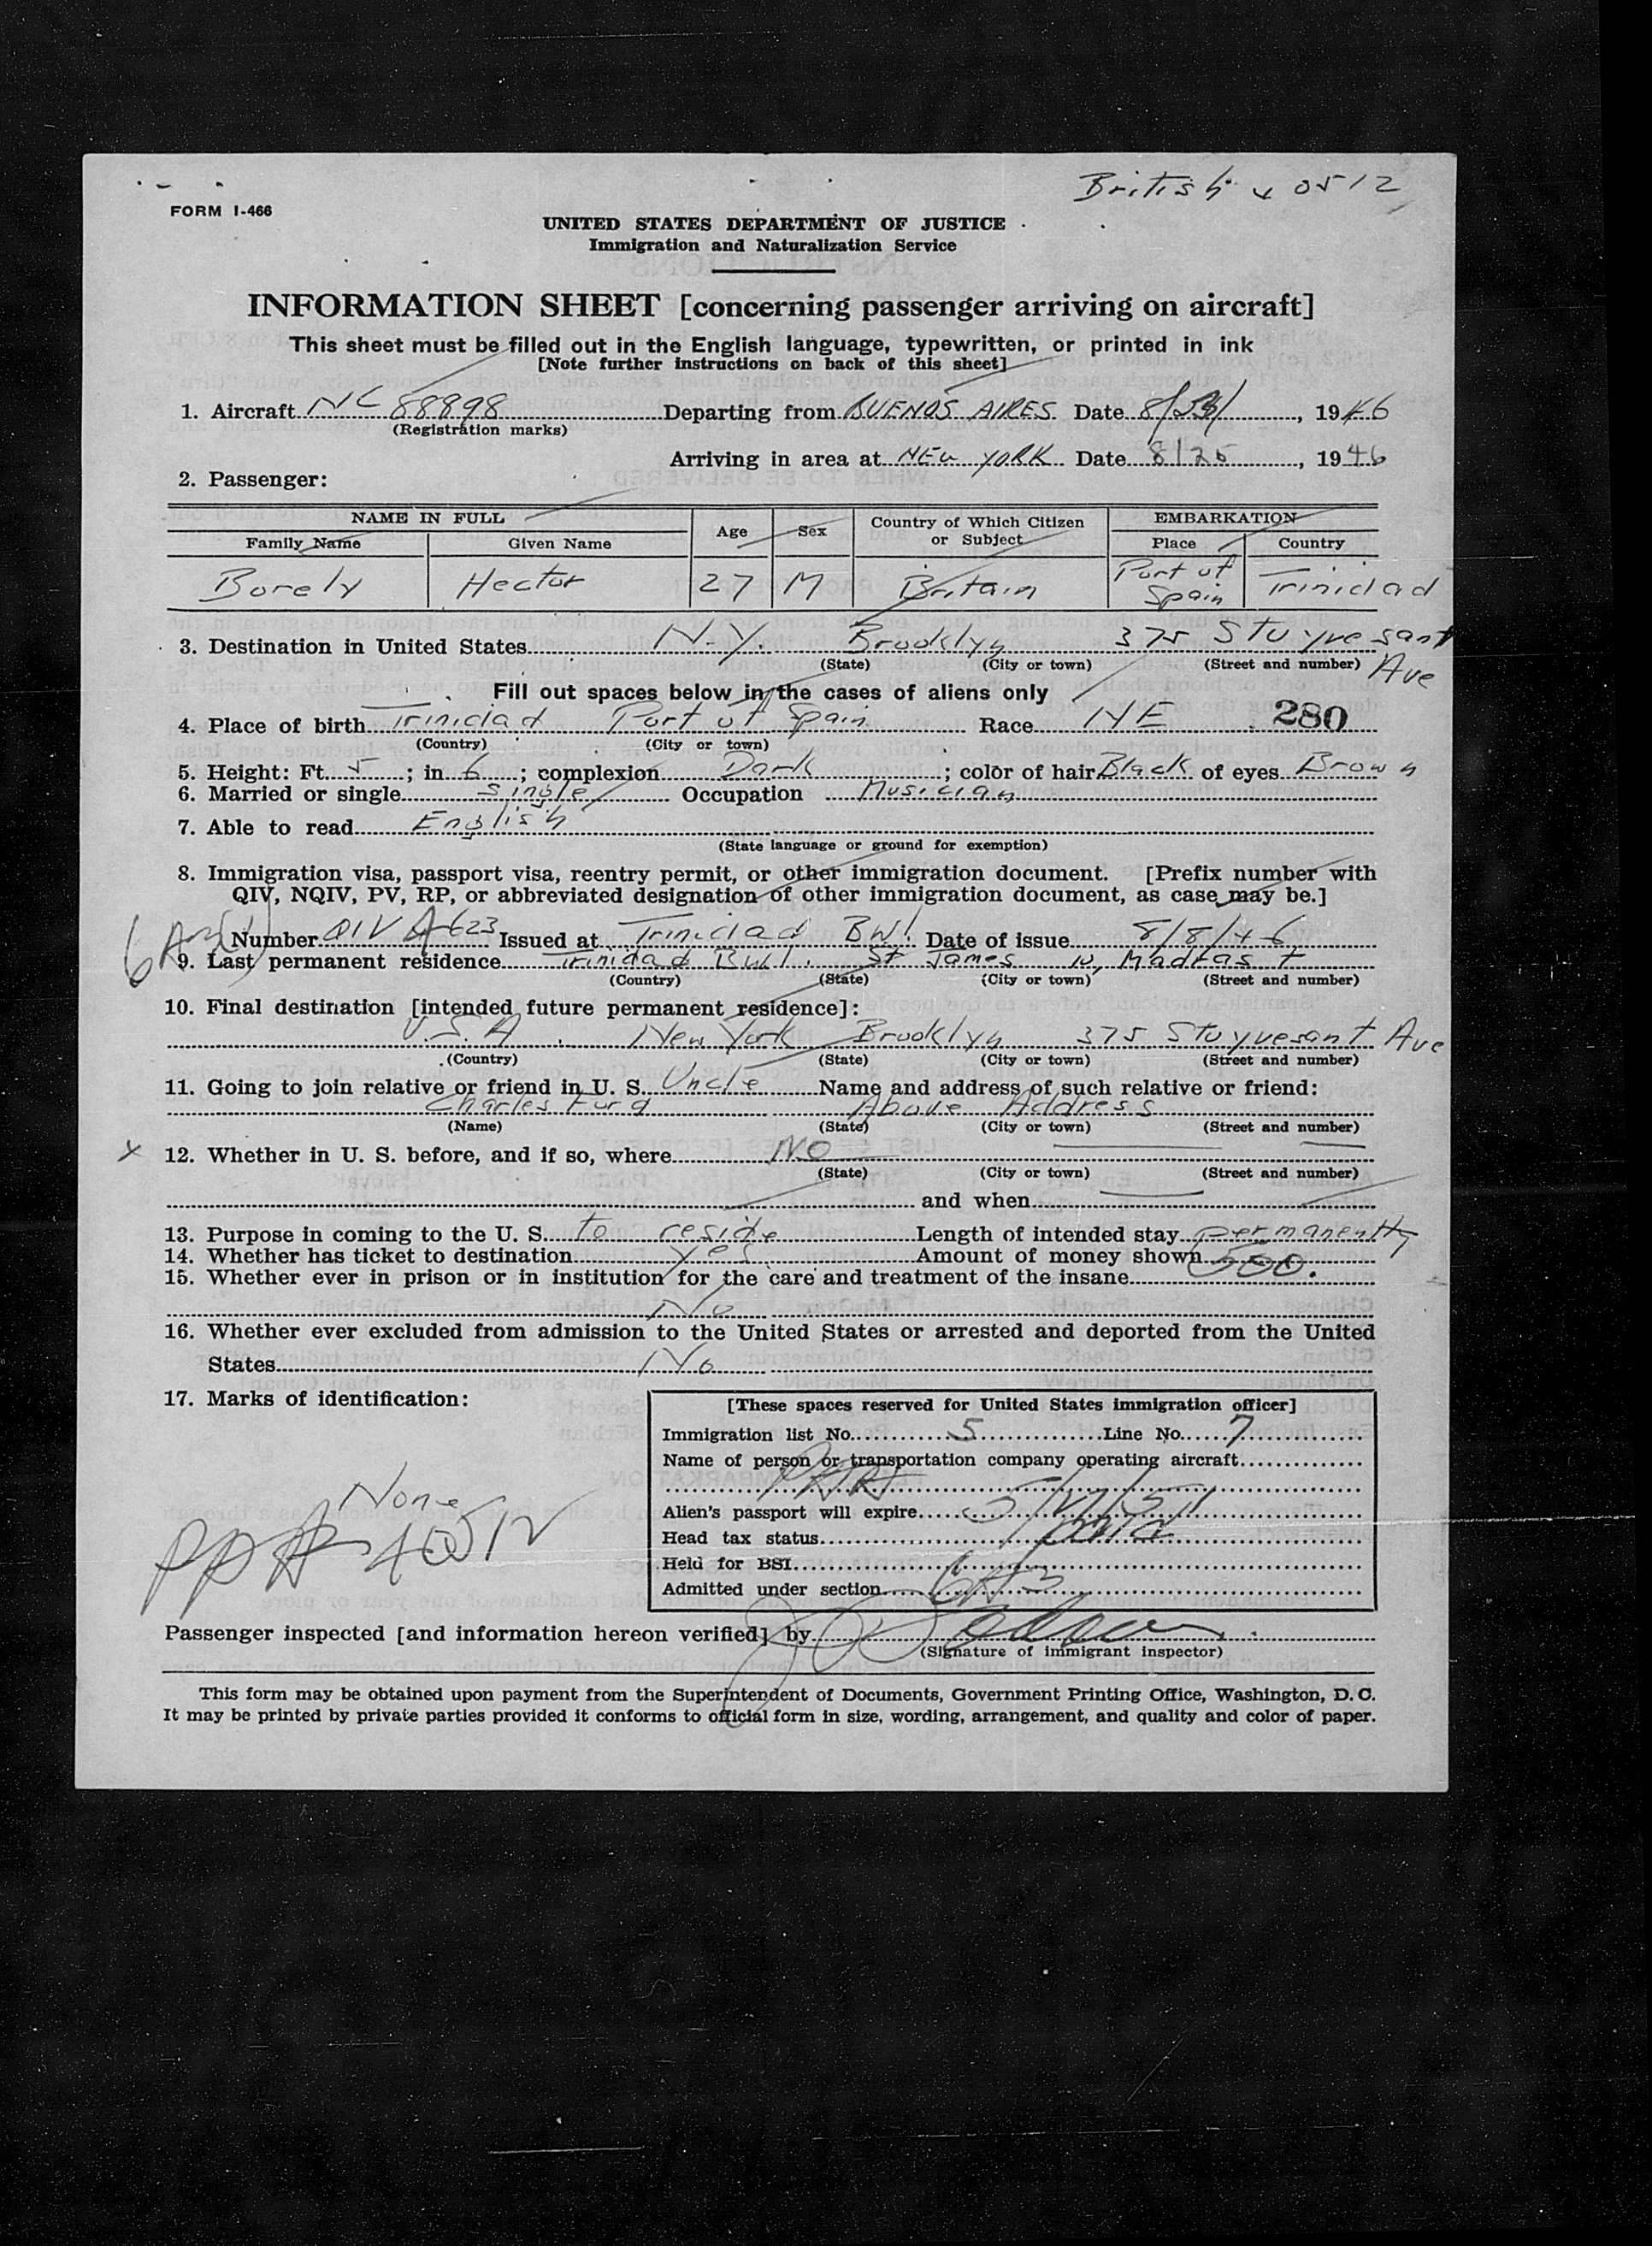 British 0512
FORM I-466
UNITED STATES DEPARTMENT OF JUSTICE
Immigration and Naturalization Service
INFORMATION SHEET [concerning passenger arriving on aircraft]
This sheet must be filled out in the English language, typewritten, or printed in ink
[Note further instructions on back of this sheet]
1. Aircraft NC 88898 Departing from BUENOS AIRES Date 8/ , 1946
(Registration marks)
Arriving in area at NEW YORK Date 8/25, 1946
2. Passenger:
NAME IN FULL Age Sex Country of Which Citizen or Subject EMBARKATION
Family Name Given Name Place Country
Borely Hector 27 M Britain Port of Spain Trinidad
3. Destination in United States N.Y. Brooklyn 375 Stuyvesant Ave
(State) (City or town) (Street and number)
Fill out spaces below in the cases of aliens only
4. Place of birth Trinidad Port of Spain Race NE 280
(Country) (City or town)
5. Height: Ft. 5; in 6; complexion Dark; color of hair Black of eyes Brown
6. Married or single single Occupation Musician
7. Able to read English
(State language or ground for exemption)
8. Immigration visa, passport visa, reentry permit, or other immigration document. [Prefix number with
QIV, NQIV, PV, RP, or abbreviated designation of other immigration document, as case may be.]
Number QIV 623 Issued at Trinidad BWI. Date of issue 8/8/46
9. Last permanent residence Trinidad BWI. St James 10, Madras St
(Country) (State) (City or town) (Street and number)
10. Final destination [intended future permanent residece]:
U.S.A. New York Brooklyn 375 Stuyvesant Ave
(Country) (State) (City or town) (Street and number)
11. Going to join relative or friend in U. S. Uncle Name and address of such relative or friend:
Charles Above Address
(Name) (State) (City or town) (Street and number)
x 12. Whether in U. S. before, and if so, where NO
(State) (City or town) (Street and number)
and when
13. Purpose in coming to the U. S. to reside Length of intended stay permanently
14. Whether has ticket to destination yes Amount of money shown 500.
15. Whether ever in prison or in institution for the care and treatment of the insane
No
16. Whether ever excluded from admission to the United States or arrested and deported from the United
States No
17. Marks of identification:
None
[These spaces reserved for United States immigration officer]
Immigration list No. 5 Line No. 7
Name of person or transportation company operating aircraft
PAA
Alien's passport will expire
Head tax status
Held for BSI
Admitted under section
Passenger inspected [and information hereon verified] by
(Signature of immigrant inspector)
This form may be obtained upon payment from the Superintendent of Documents, Government Printing Office, Washington, D. C.
It may be printed by private parties provided it conforms to official form in size, wording, arrangement, and quality and color of paper.